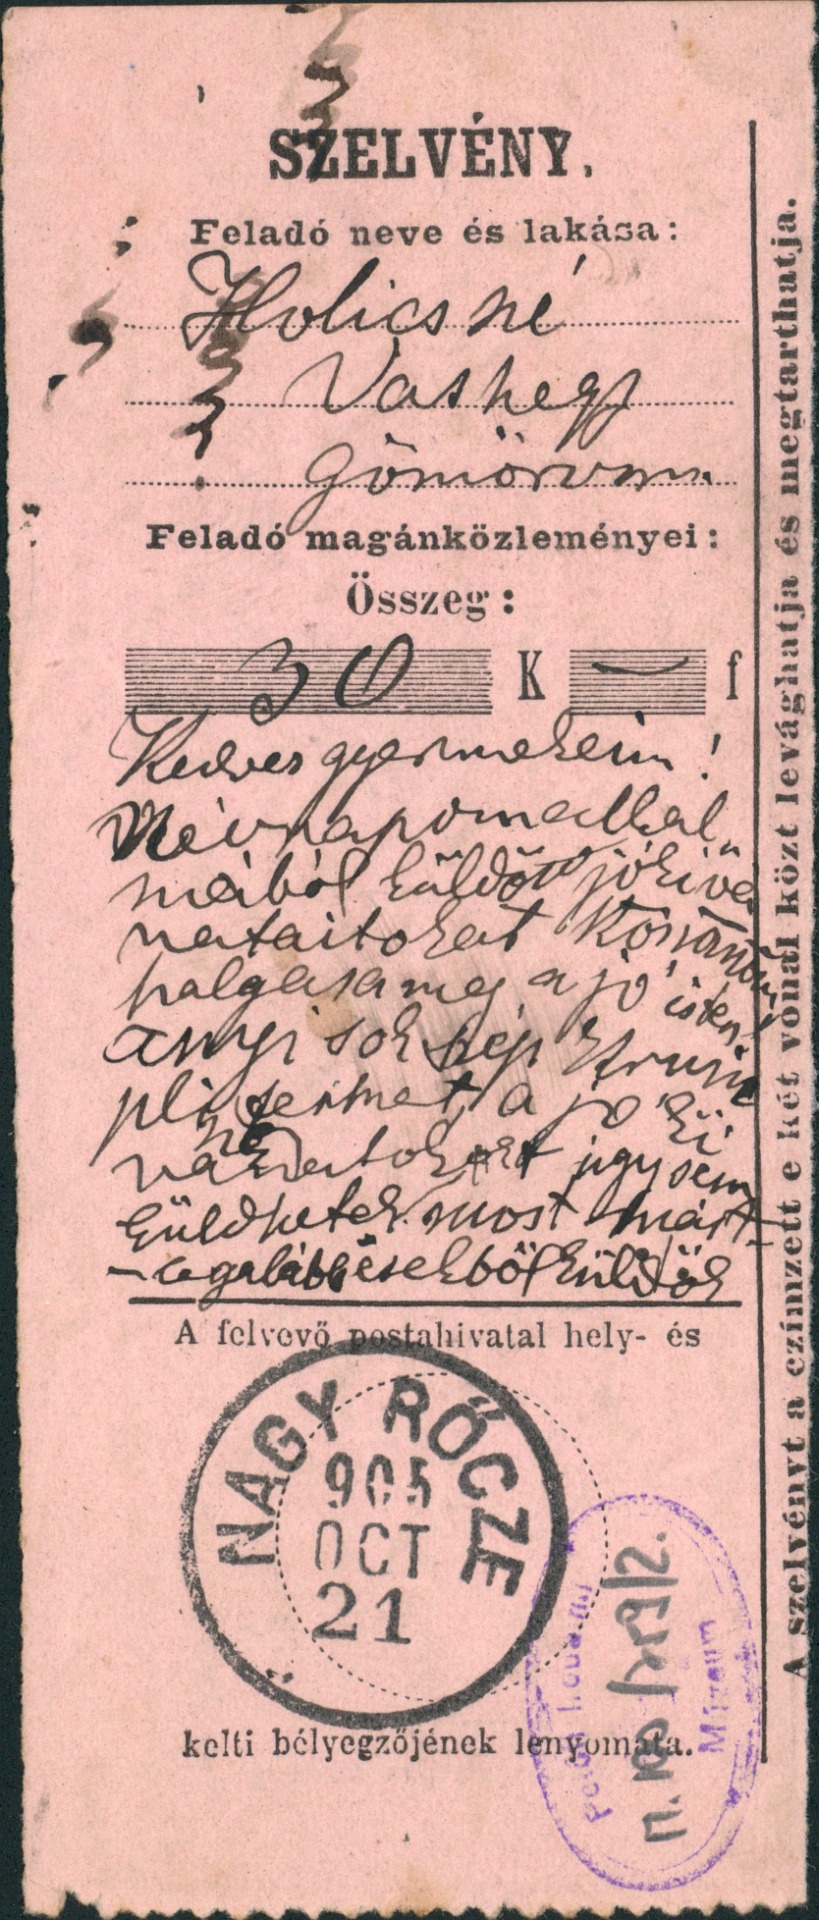 SZELVÉNY.
Feladó neve és lakása:
Holicsné
Vashegy
Gömörvm.
Feladó magánközleményei:
Összeg:
30 K — f
Kedves gyermekeim!
Névnapom alkal
mából küldött jókivá
nataitokat Köszönöm
halgassa meg a jó isten
anyi sok szép
a jó ki
ugy sem
küldhetek most már
legalább küldök
A felvevő postahivatal hely- és
NAGY RŐCZE
905
OCT
21
kelti bélyegzőjének lenyomata.
Múzeum
A szelvényt a czímzett e két vonal közt levághatja és megtarthatja.